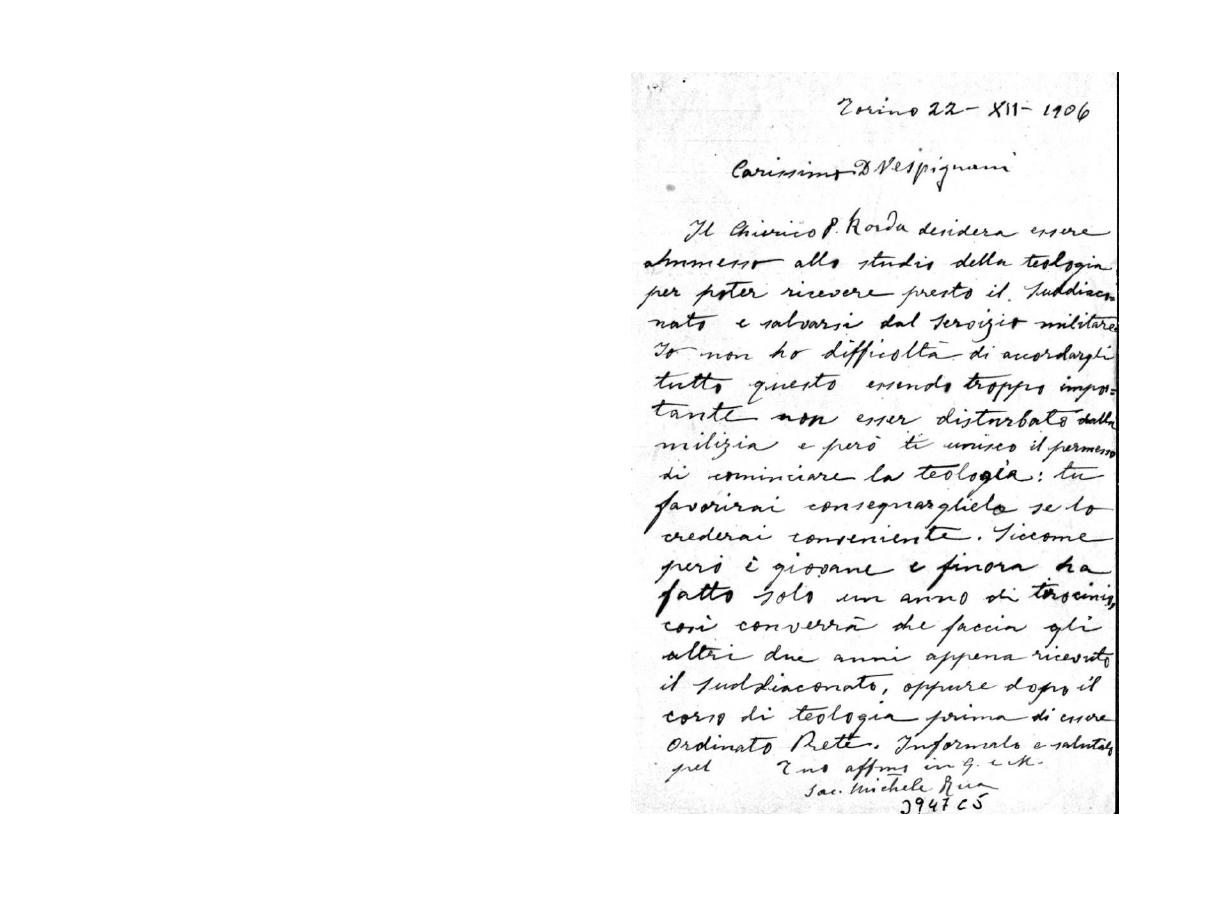 Torino 22 - XII - 1906
Carissimo D Vespignani
Il Chierico P. Korda desidera essere
ammesso allo studio della teologia
per poter ricevere presto il Suddiaco-
nato e salvarsi dal servizio militare
Io non ho difficoltà di accordargli
tutto questo essendo troppo impor=
tante non esser disturbato dalla
milizia e però ti unisco il permesso
di cominciare la teologia: tu
favorirai consegnarglielo se lo
crederai conveniente. Siccome
però è giovane e finora ha
fatto solo un anno di tirocinio,
così converrà che faccia gli
altri due anni appena ricevuto
il Suddiaconato, oppure dopo il
corso di teologia prima di essere
ordinato Prete. Informalo e salutalo
pel Tuo affmo in G. e M.
Sac. Michele Rua
3947 C 5